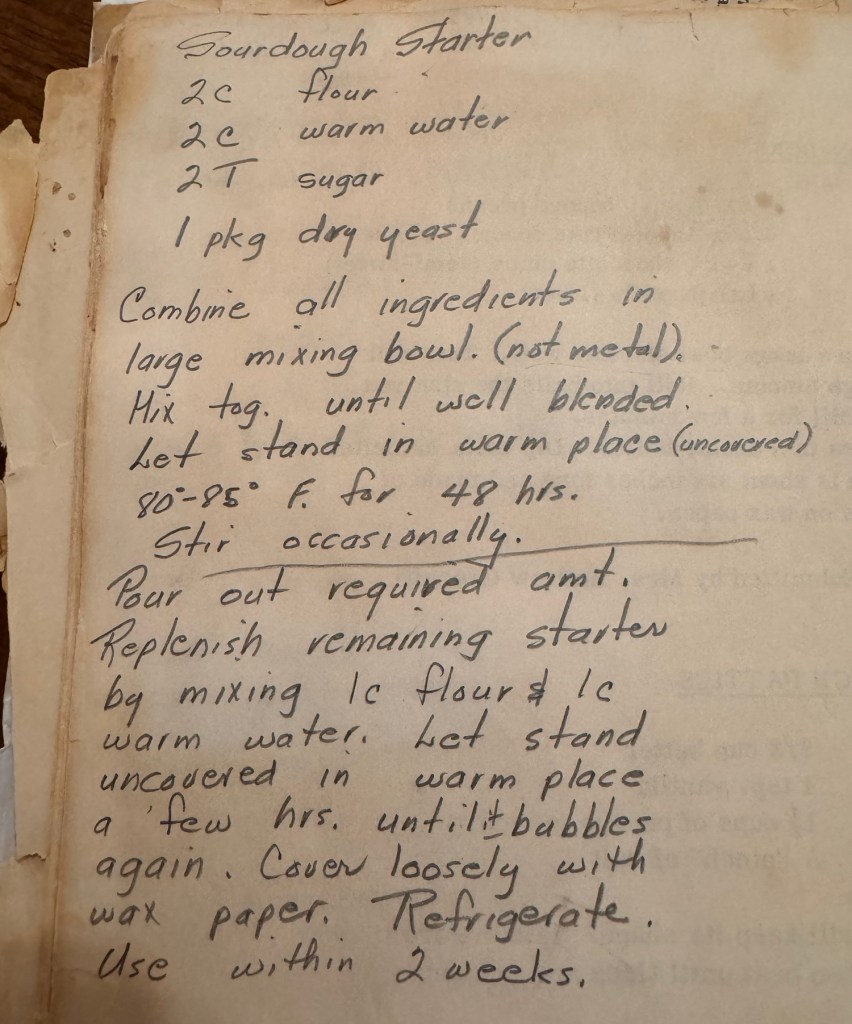 Sourdough Starter
2c flour
2c warm water
2T sugar
1 pkg dry yeast
Combine all ingredients in
large mixing bowl. (not metal).
Mix tog. until well blended.
Let stand in warm place (uncovered)
80°-85° F. for 48 hrs.
Stir occasionally.
Pour out required amt.
Replenish remaining starter
by mixing 1c flour & 1c
warm water. Let stand
uncovered in warm place
a few hrs. until it bubbles
again. Cover loosely with
wax paper. Refrigerate.
Use within 2 weeks.